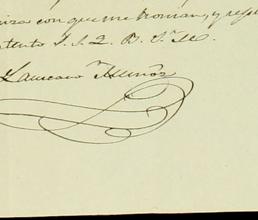 con que me honran, y
atento S. S. Q. B. S. M.
Laureano Muñoz